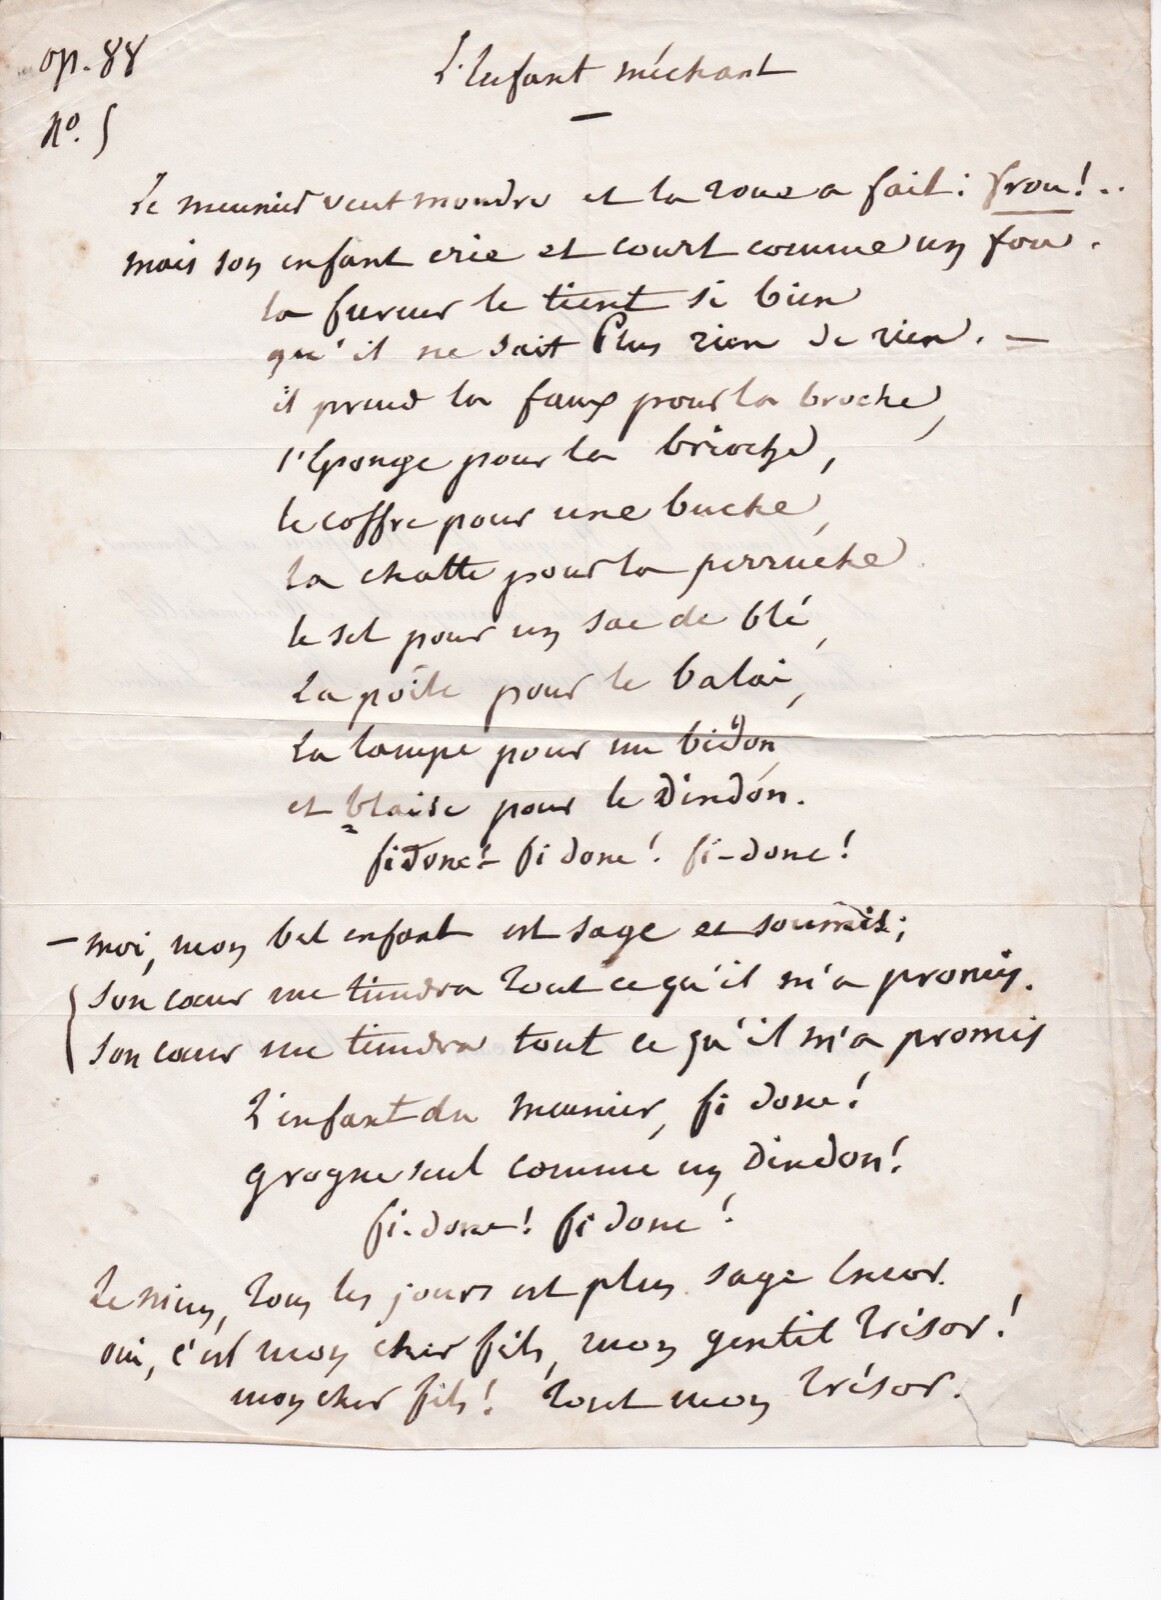 op. 88
L'Enfant méchant
N°. 5
Le meunier veut moudre et la roue a fait : frou! ..
mais son enfant crie et court comme un fou .
la fureur le tient si bien
qu'il ne sait Plus rien de rien . —
il prend la faux pour la broche,
l'Eponge pour la brioche,
le coffre pour une buche,
la chatte pour la perruche
le sel pour un sac de blé,
La poële pour le balai,
La lampe pour un bidon,
et blaise pour le Dindon.
fi donc! fi donc! fi-donc!
— moi, mon bel enfant est sage et soumis;
son cœur me tiendra tout ce qu'il m'a promis.
son cœur me tiendra tout ce qu'il m'a promis
L'enfant du meunier, fi donc!
grogne seul comme un Dindon!
fi-donc! fi donc!
Le mien, tous les jours est plus sage Encor.
oui, c'est mon cher fils, mon gentil trésor!
mon cher fils! tout mon trésor.